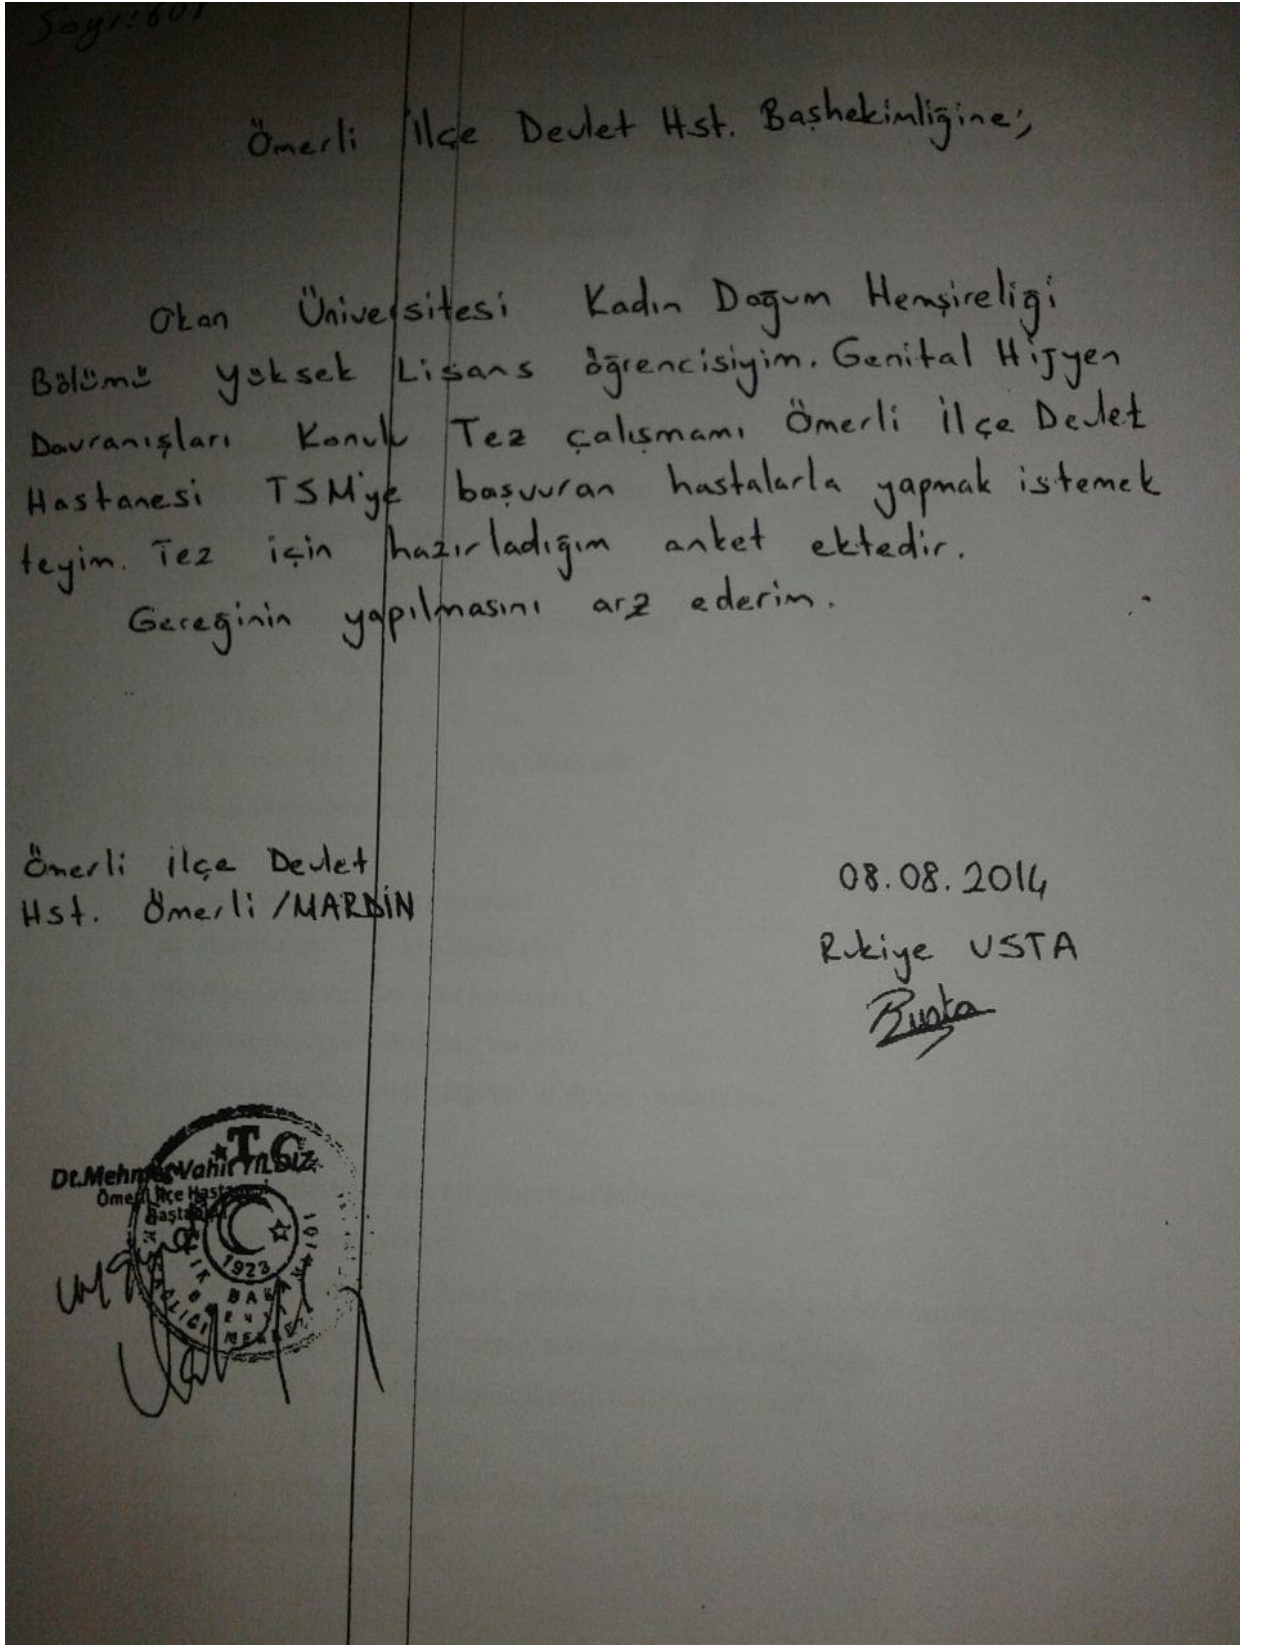 Sayı: 601
Ömerli İlçe Devlet Hst. Başhekimliğine;
Okan Üniversitesi Kadın Doğum Hemşireliği
Bölümü Yüksek Lisans öğrencisiyim. Genital Hijyen
Davranışları Konulu Tez çalışmamı Ömerli İlçe Devlet
Hastanesi TSM'ye başvuran hastalarla yapmak istemek
teyim. Tez için hazırladığım anket ektedir.
Gereğinin yapılmasını arz ederim.
Ömerli ilçe Devlet
Hst. Ömerli /MARDİN
08.08.2014
Rukiye USTA
Rusta
T.C.
Dt.Mehmet Vahit YILDIZ
Ömerli İlçe Hastanesi
Baştabibi
1923